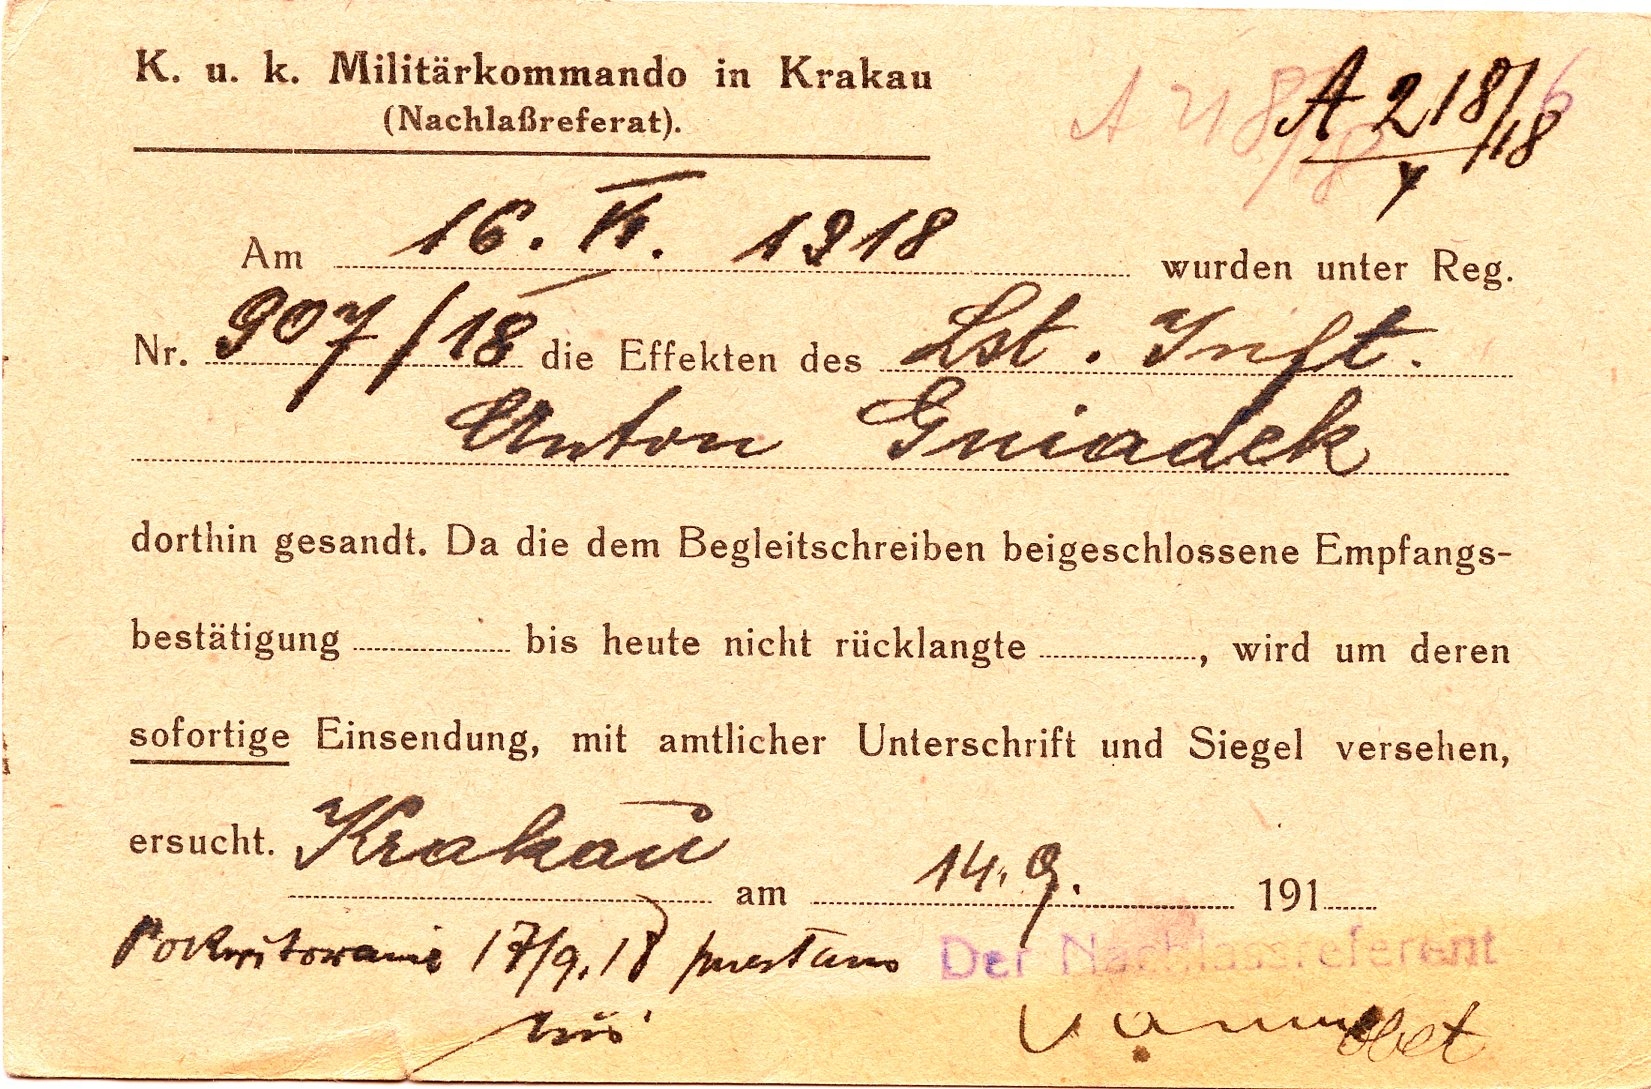 K. u. k. Militärkommando in Krakau
(Nachlaßreferat).
A 218/18
A 218/18 6
Am 16. VI. 1918 wurden unter Reg.
Nr. 907/18 die Effekten des Lst. Inft.
Anton Gniadek
dorthin gesandt. Da die dem Begleitschreiben beigeschlossene Empfangs-
bestätigung bis heute nicht rücklangte , wird um deren
sofortige Einsendung, mit amtlicher Unterschrift und Siegel versehen,
ersucht. Krakau am 14. 9. 191
Pokwitowanie 17/9. 18
Der Nachlassreferent